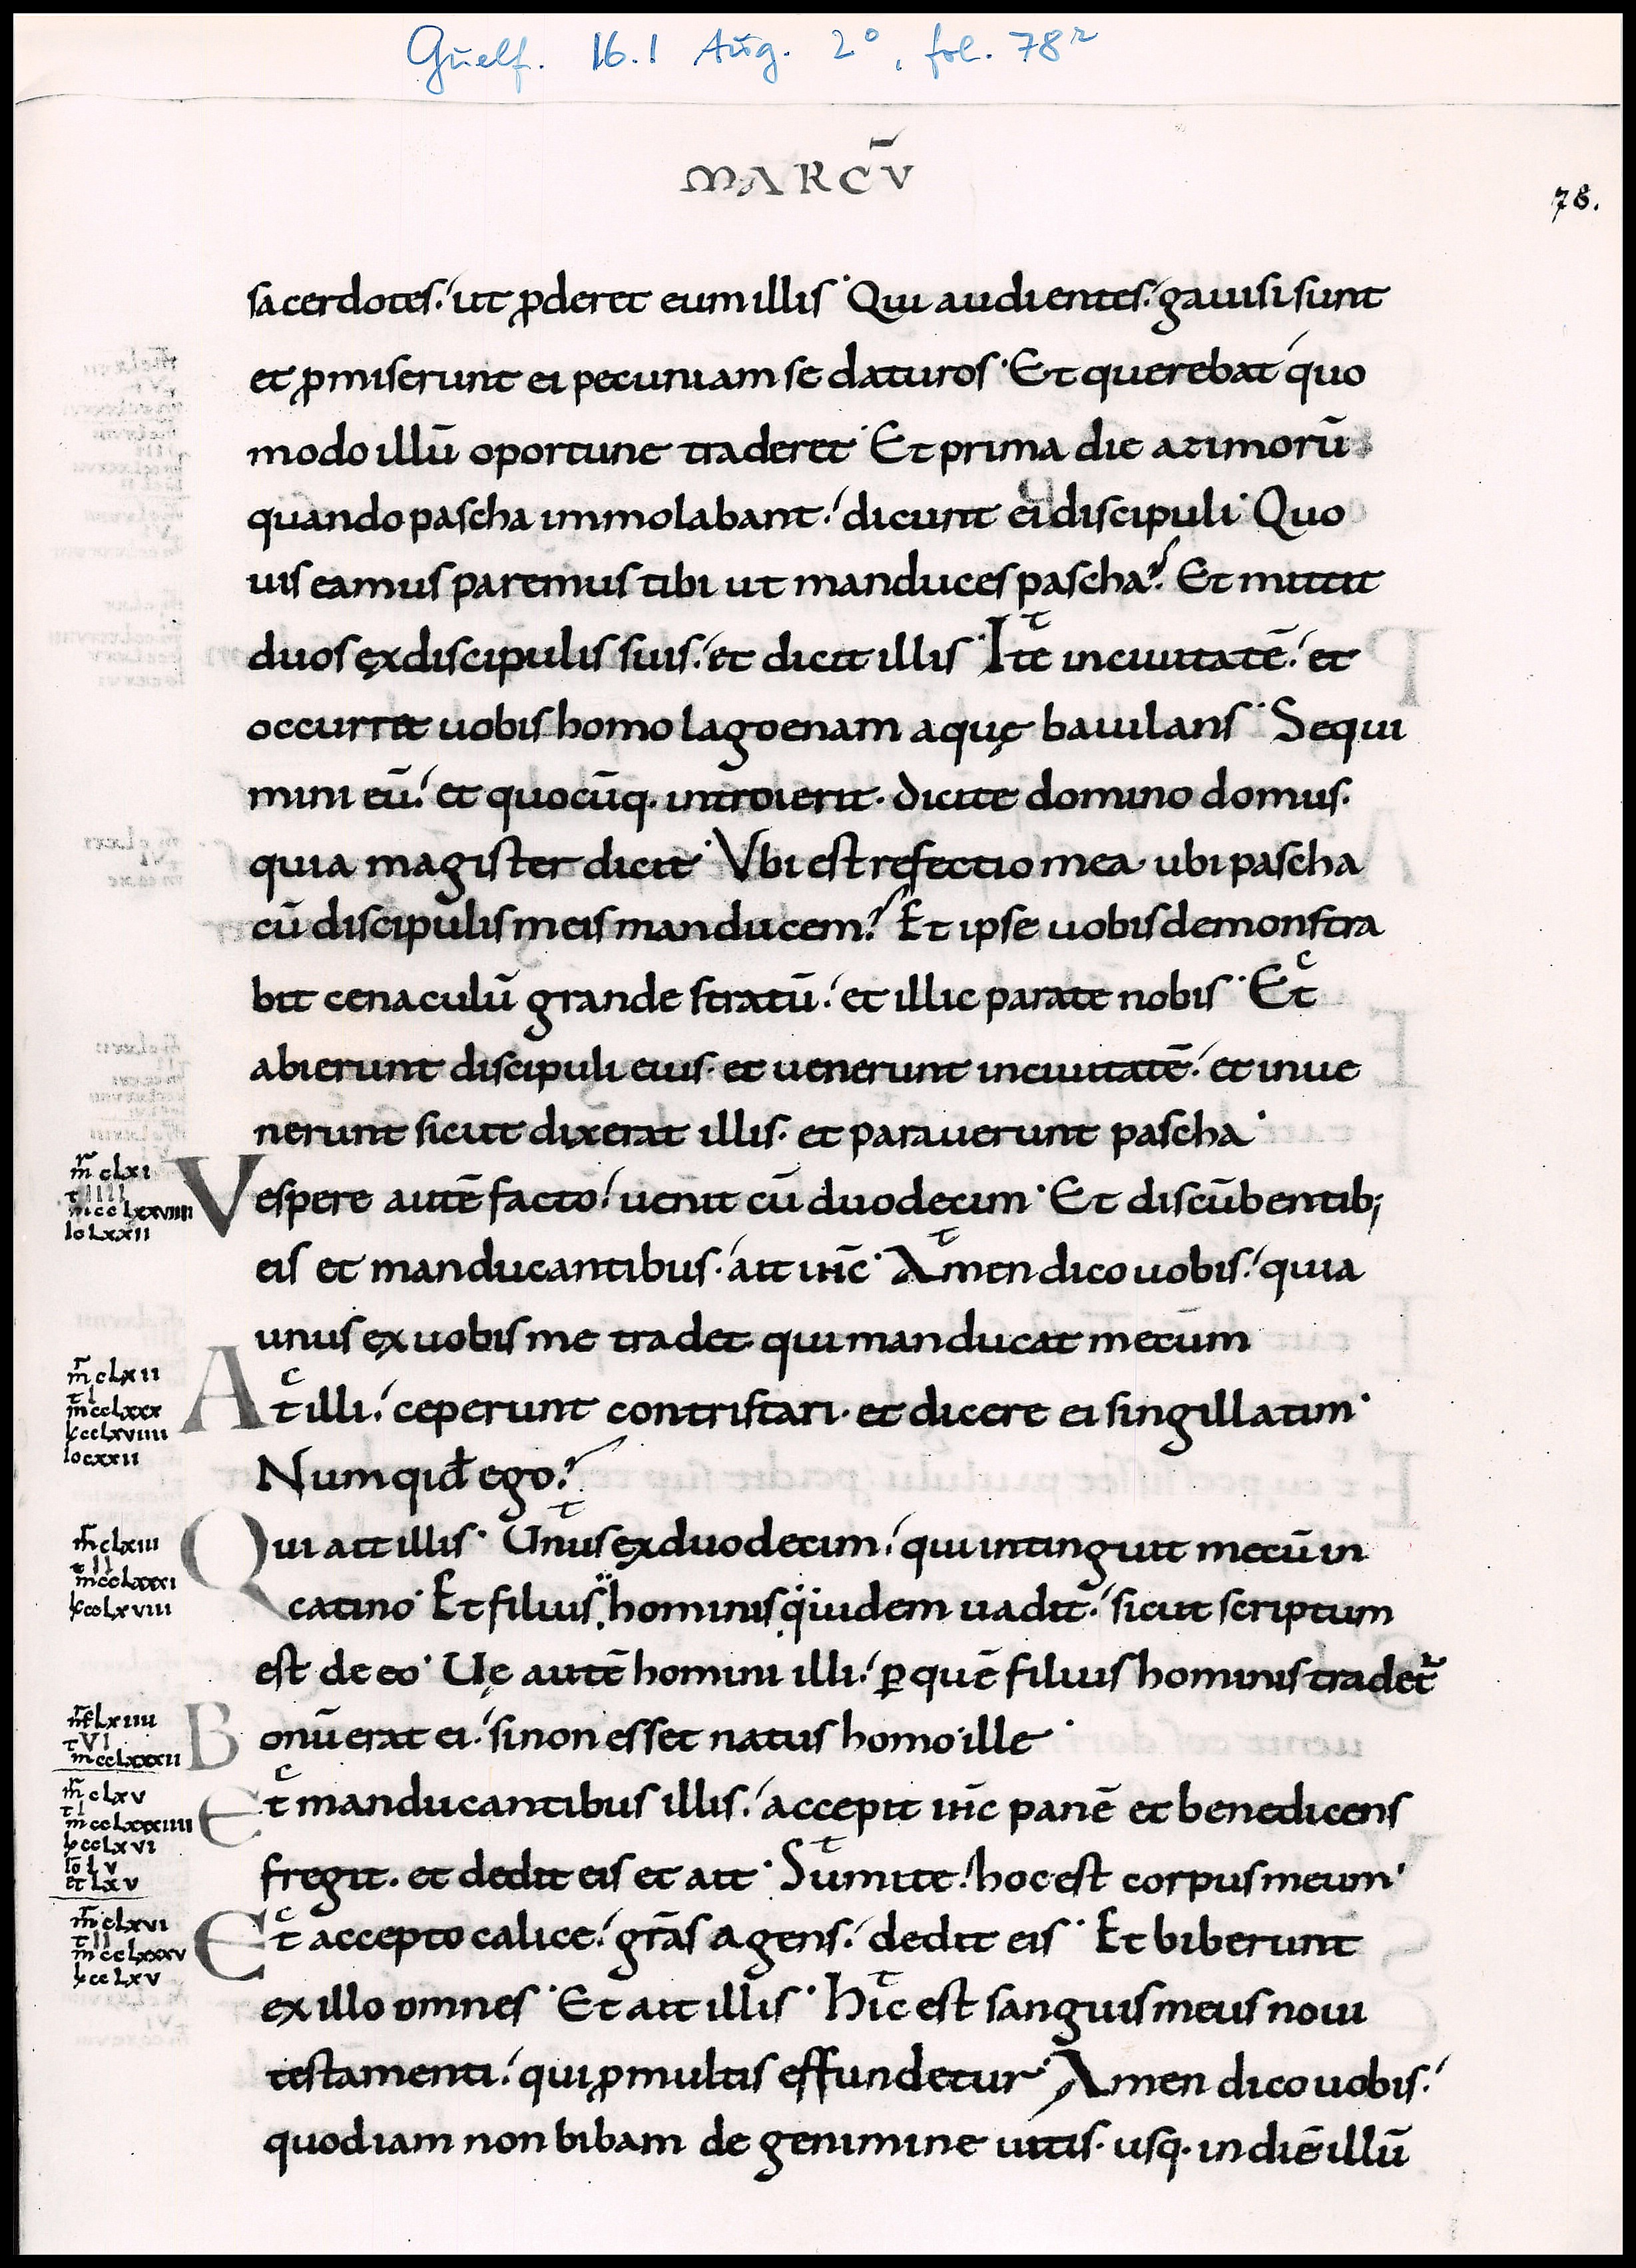 Guelf. 16.1 Aug. 2°, fol. 78r
MARCV̄
78.
sacerdotes. ut ꝓderet eum illis Qui audientes. gauisi sunt
et ꝓmiserunt ei pecuniam se daturos Et querebat quo
modo illū oportune traderet Et prima die azimorū
quando pascha immolabant. dicunt ei discipuli Quo
uis eamus paremus tibi ut manduces pascha? Et mittit
duos ęx discipulis suis. et dicit illis Ite in ciuitatē. et
occurret uobis homo lagoenam aquę baiulans Sequi
mini eū. et quocūq. introierit. dicite domino domus.
quia magister dicit Vbi est refectio mea. ubi pascha
cū discipulis meis manducem? Et ipse uobis demonstra
bit cenaculū grande stratū. et illic parate nobis Et
abierunt discipuli eius. et uenerunt in ciuitatē. et inue
nerunt sicut dixerat illis. et parauerunt pascha
m̄ clxi
t IIII
m cclxxviiii
lo Lxxii
Vespere autē facto. uenit cū duodecim Et discūbentib;
eis et manducantibus. ait ih̄c Amen dico uobis. quia
unus ęx uobis me tradet. qui manducat mecūm
m̄ cLxii
t I
m ccLxxx
l ccLxviiii
lo cxxii
At illi. ceperunt contristari. et dicere ei singillatim
Numqid̄ ego?
m̄ cLxiii
t II
m ccLxxxi
l ccLxviii
Qui ait illis Unus ęx duodecim. qui intinguit mecū in
catino Et filius hominis q̈uidem uadit. sicut scriptum
est de eo Uę autē homini illi. ꝑ quē filius hominis tradet᷑
m̄ cLxiiii
t VI
m ccLxxxii
Bonū erat ei. si non esset natus homo ille
m̄ cLxv
t I
m ccLxxxiiii
l ccLxvi
Io Lv
et Lxv
Et manducantibus illis. accepit ih̄c panē et benedicens
fregit. et dedit eis et ait Sumite. hoc est corpus meum
m̄ cLxvi
t II
m ccLxxxv
l ccLxv
Et accepto calice. gr̄as agens. dedit eis Et biberunt
ex illo omnes Et ait illis Hic est sanguis meus noui
testamenti. qui ꝓ multis effundetur Amen dico uobis.
quod iam non bibam de genimine uitis. usq. in diē illū